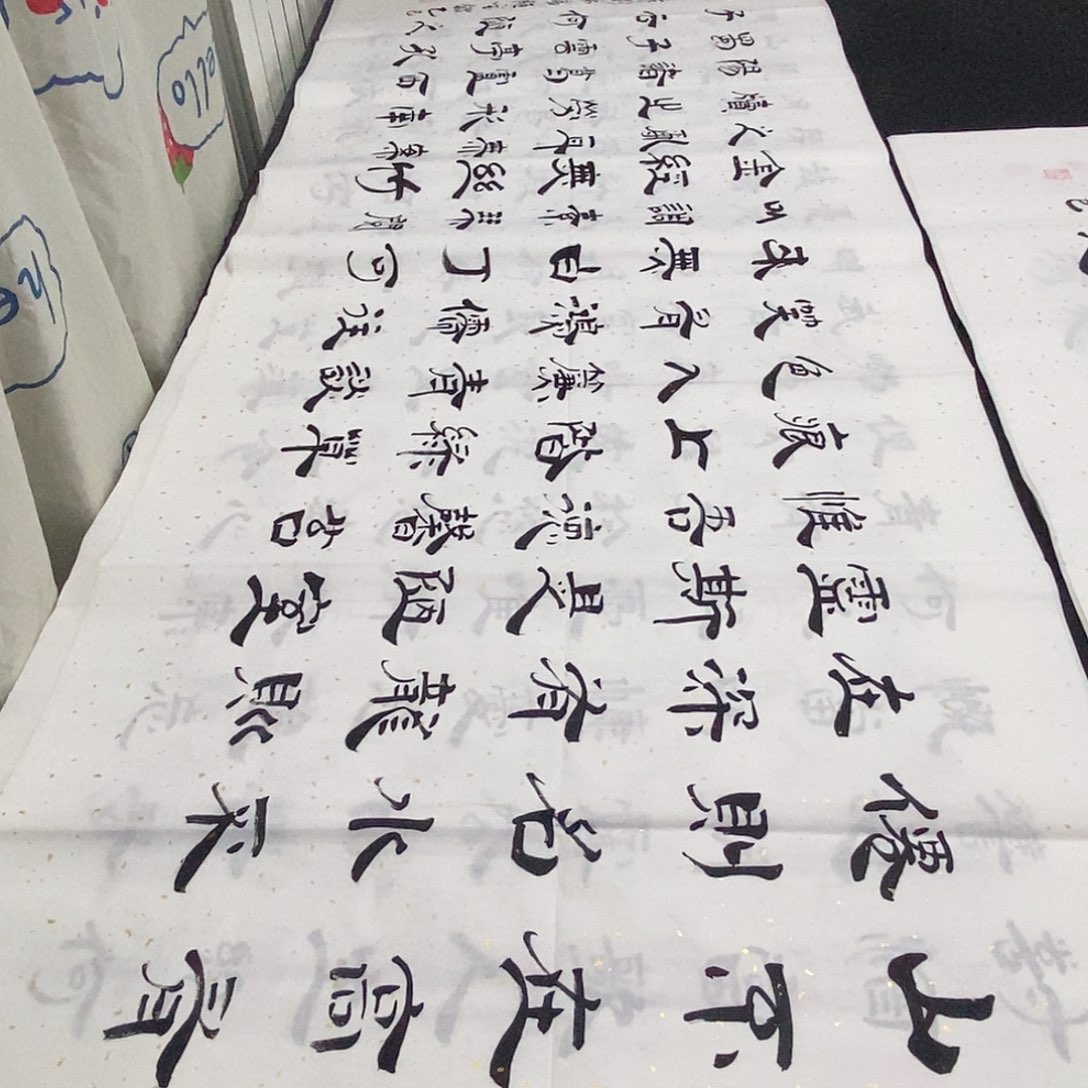 山不在高有
僊則名水不
在深有龍則
靈斯是陋室
惟吾德馨苔
痕上階綠草
色入簾青談
笑有鴻儒往
來無白丁可
㠯調素琴閱
金經無絲竹
之亂耳無案
牘之勞形南
陽諸葛廬西
蜀子雲亭孔
子云何陋之
ello
he